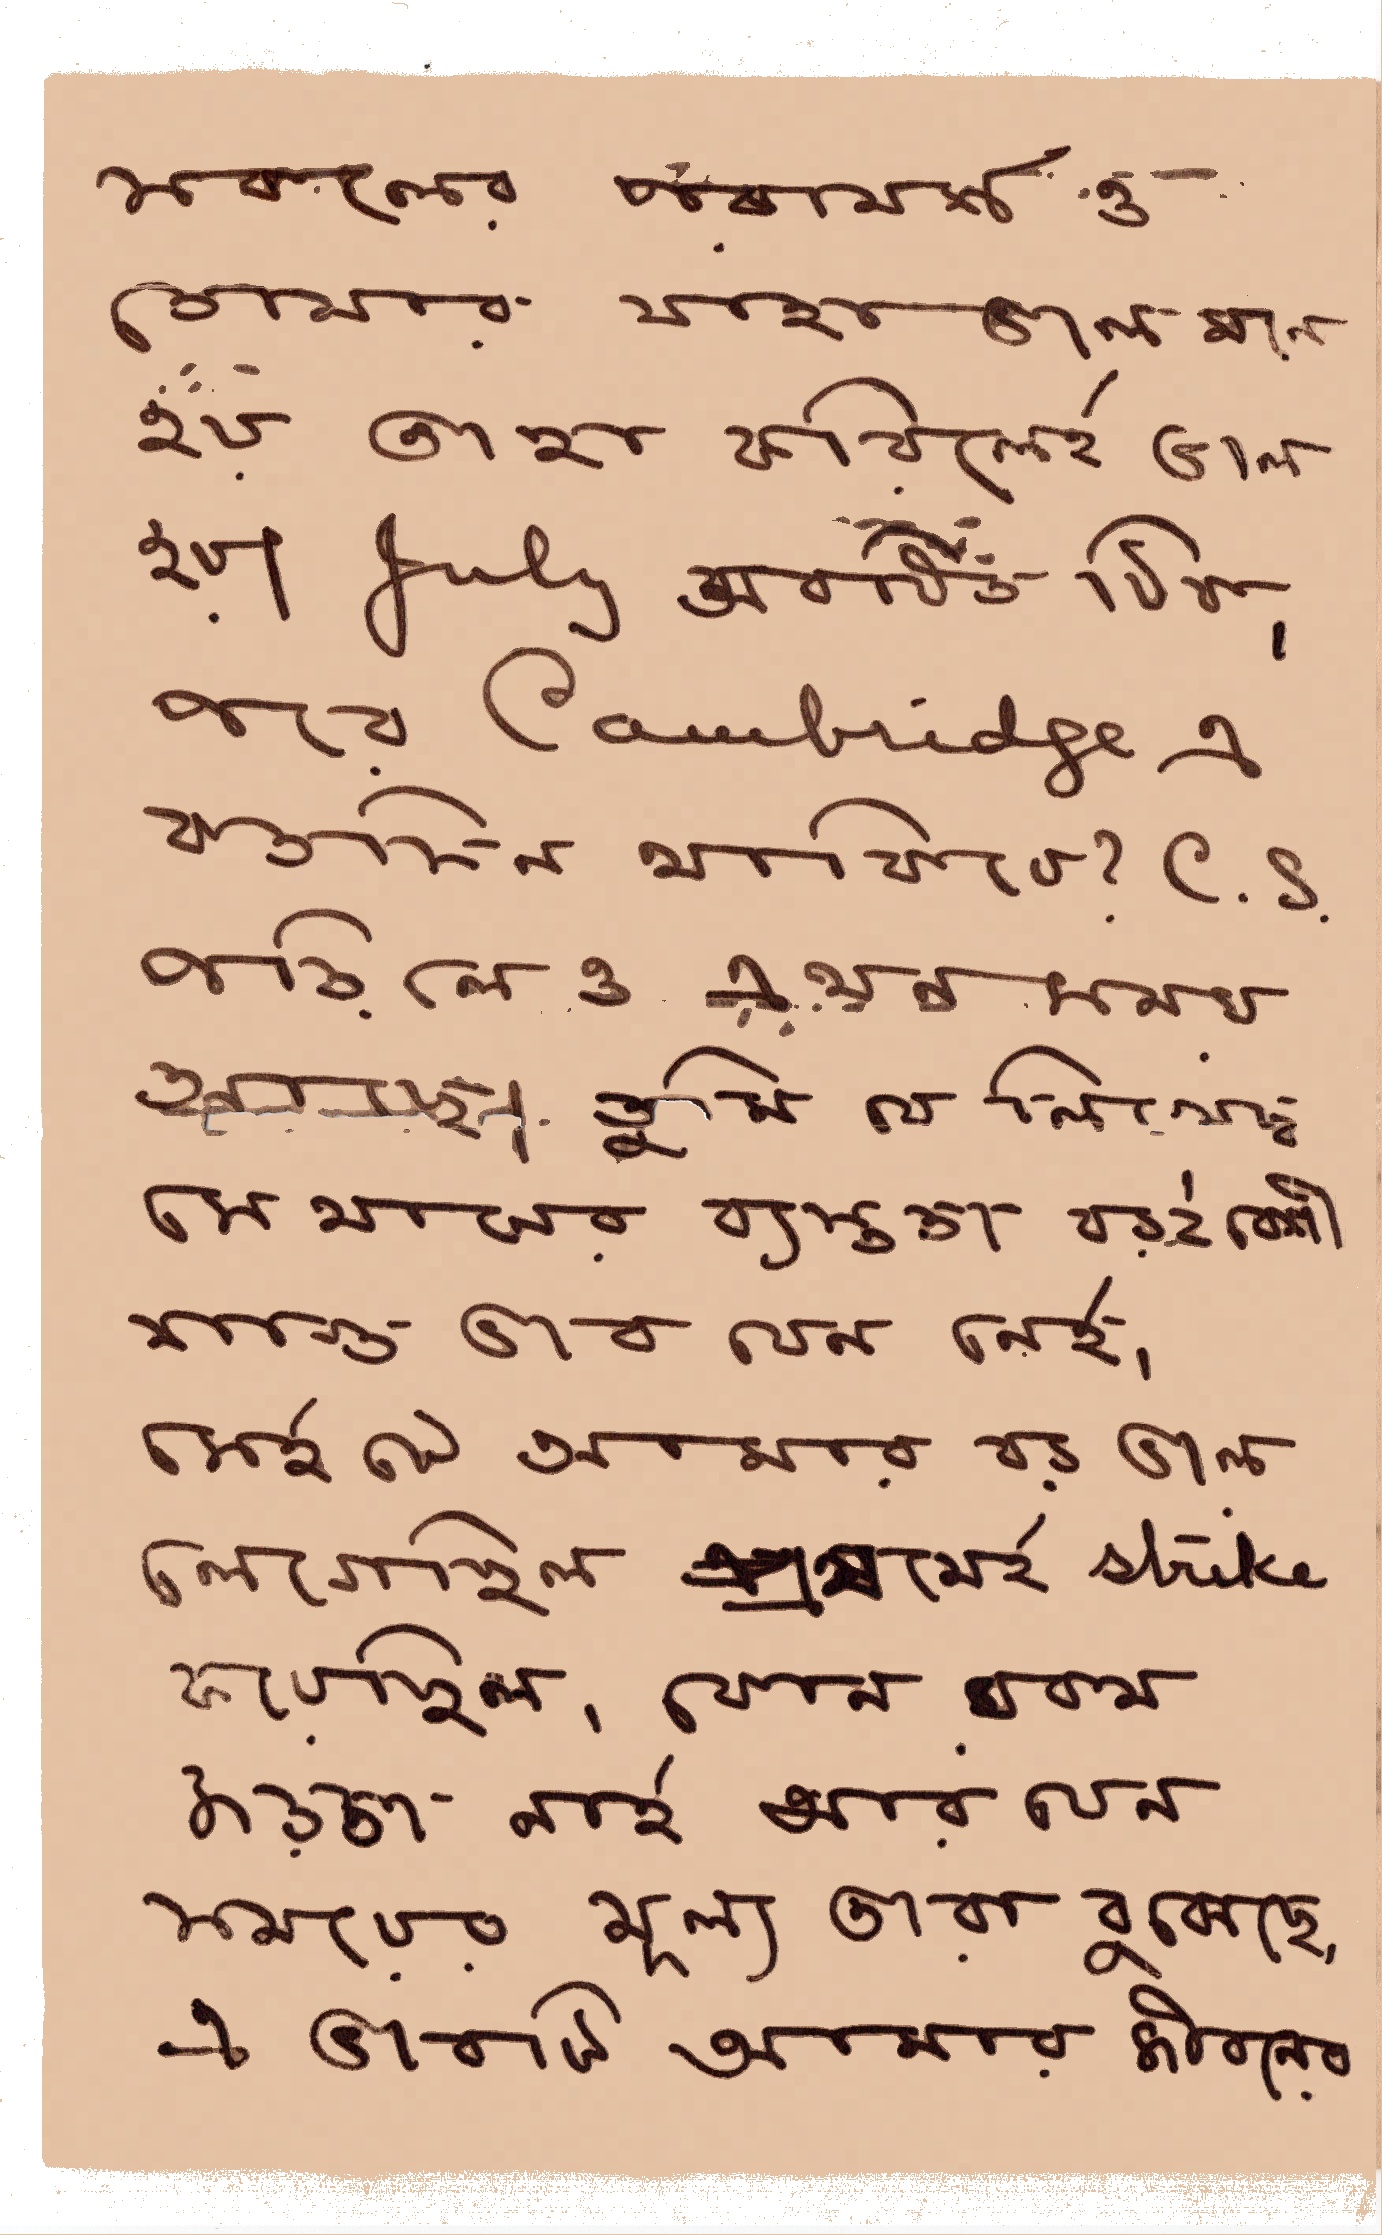 সকলের পরামর্শ ও
তোমার যাহা ভাল মনে
হয় তাহা করিলেই ভাল
হয়। July অবধি ত ঠিক,
পরে Cambridge এ
কতদিন থাকিবে? C. S.
পড়িলেও এখন সময়
তুমি যে লিখেছ
সে খানের ব্যস্ততা বড়ই বেশী
শান্ত ভাব যেন নেই,
সেইটে আমার বড় ভাল
লেগেছিল প্রথমেই strike
করেছিল, কোন রকম
হুড়তা নাই আর যেন
সময়ের মূল্য তারা বুঝেছে,
এ ভাবটি আমার জীবনের